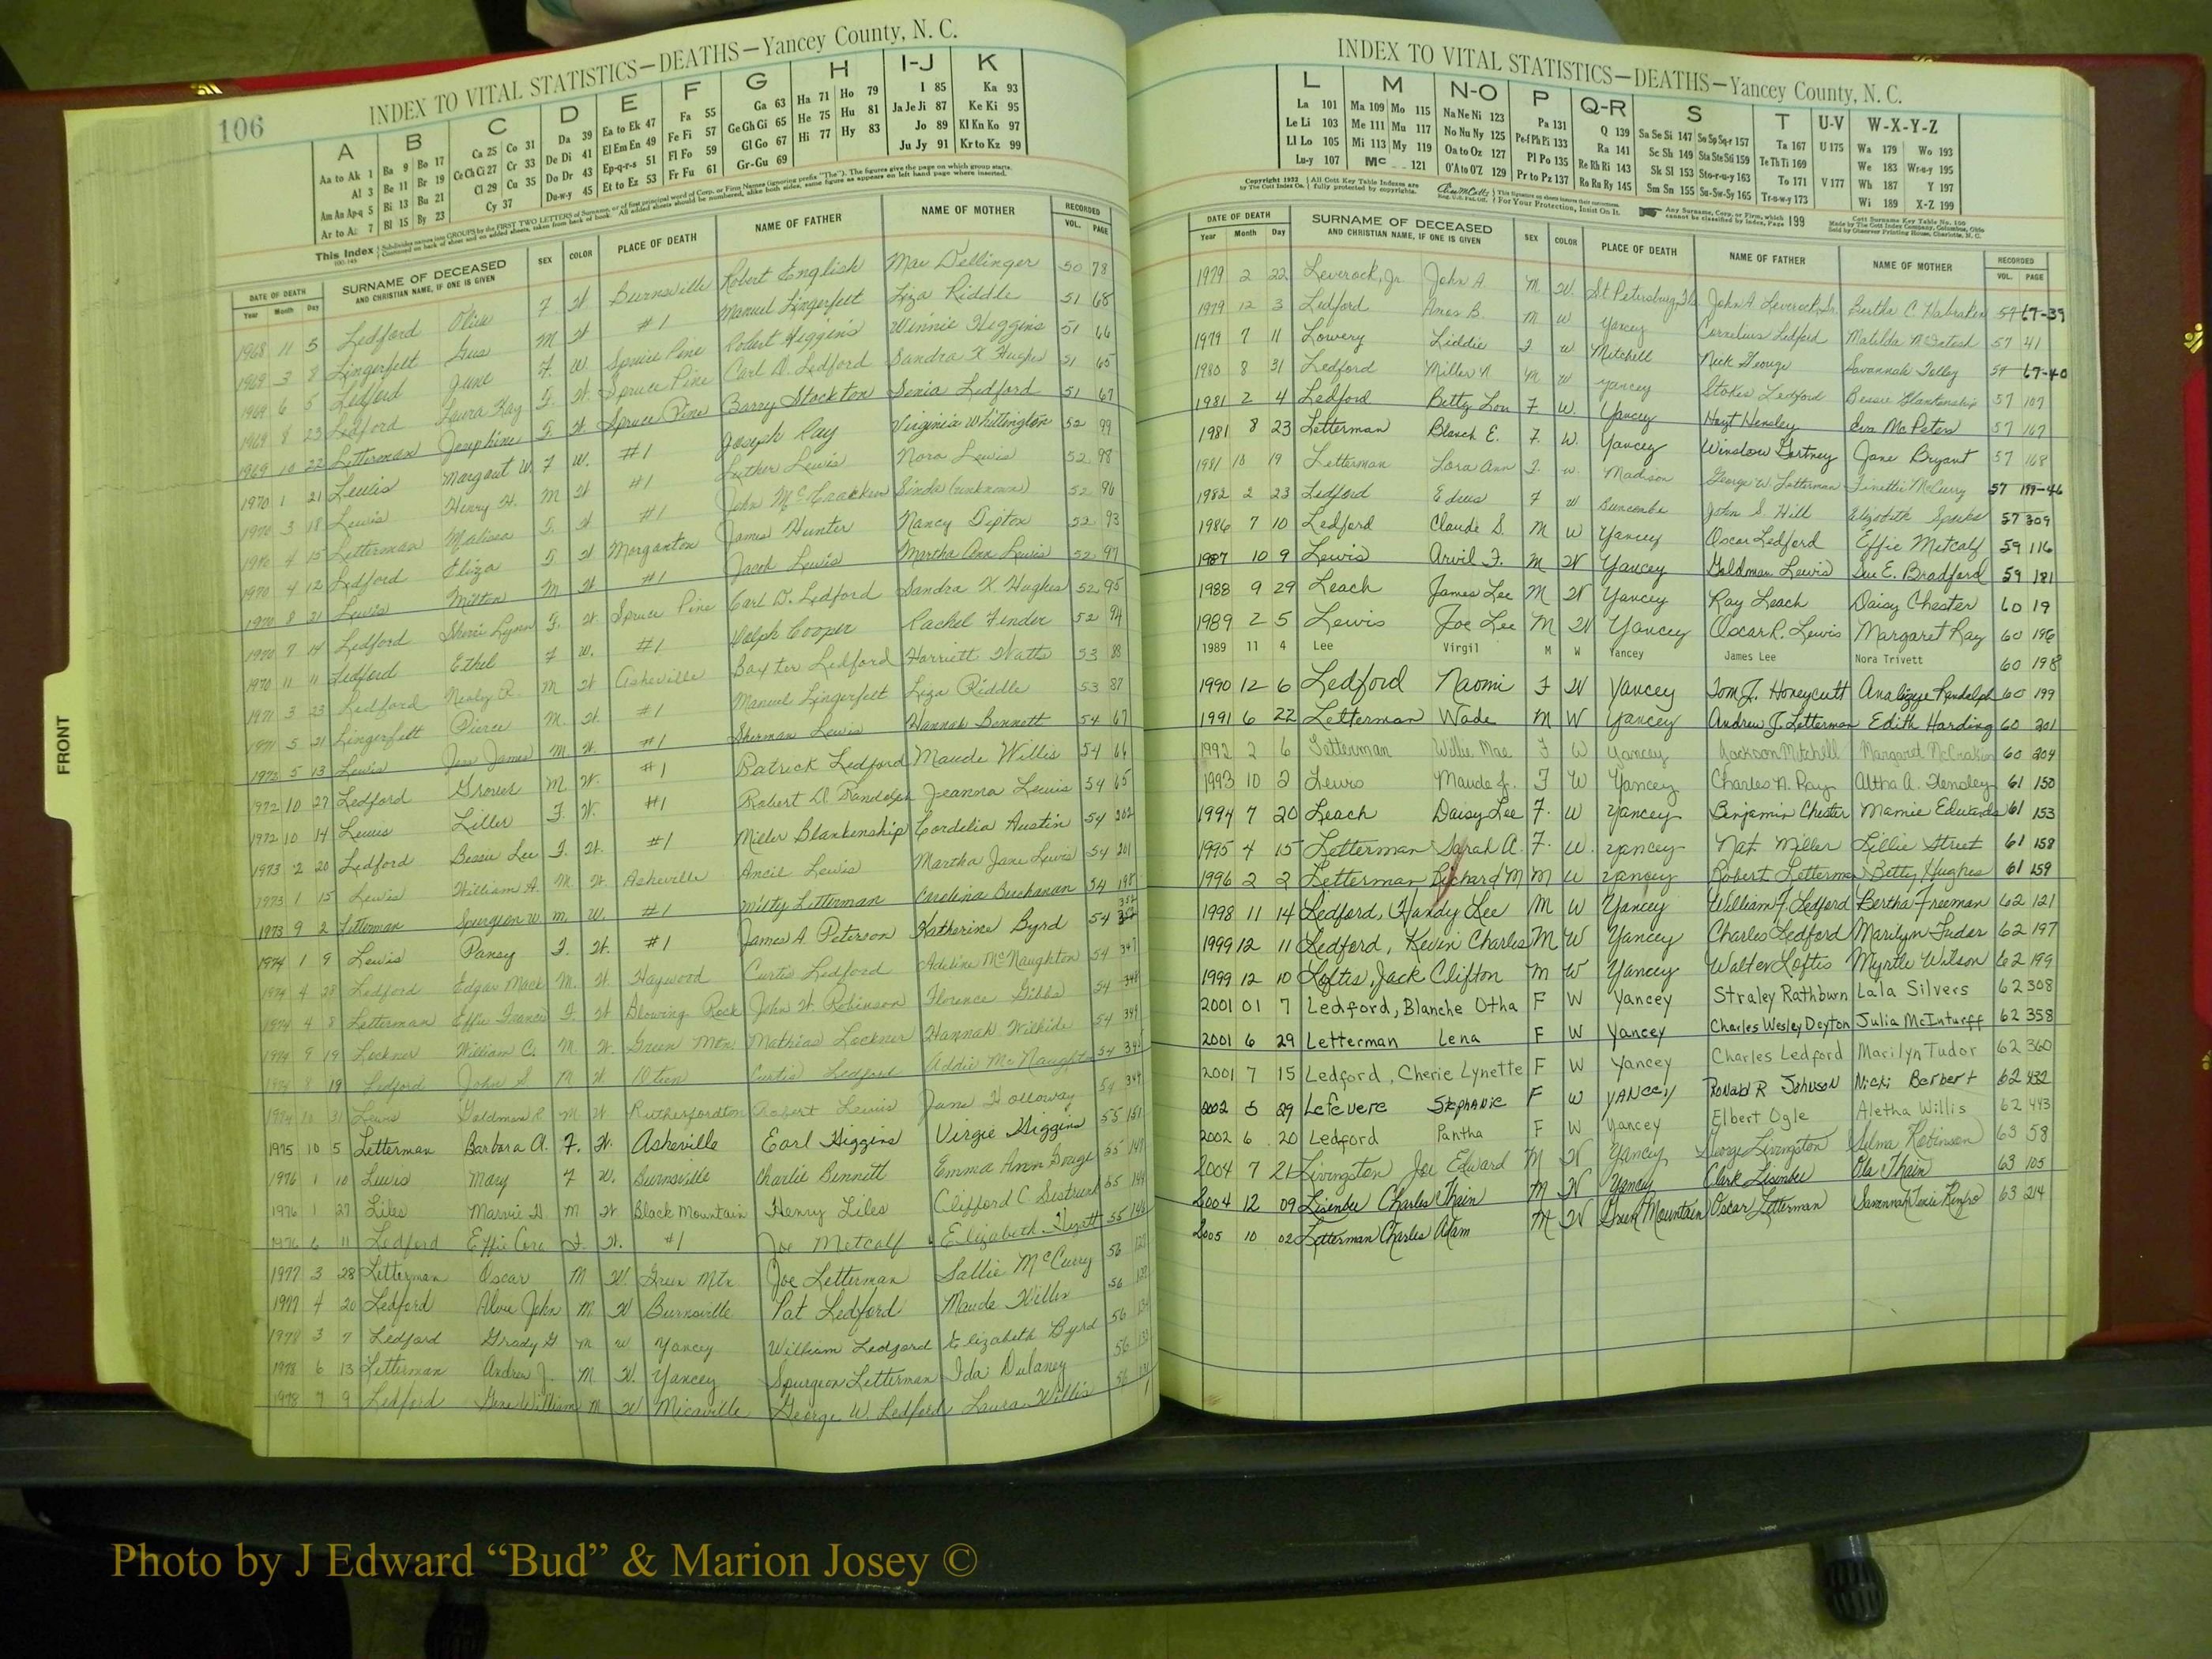 106
INDEX TO VITAL STATISTICS—DEATHS—Yancey County, N. C.
A B C D E F G H I-J K
Aa to Ak 1 Ba 9 Bo 17 Ca 25 Co 31 Da 39 Ea to Ek 47 Fa 55 Ga 63 Ha 71 Ho 79 I 85 Ka 93
Al 3 Be 11 Br 19 Ce Ch Ci 27 Cr 33 De Di 41 El Em En 49 Fe Fi 57 Ge Gh Gi 65 He 75 Hu 81 Ja Je Ji 87 Ke Ki 95
Am An Ap-q 5 Bi 13 Bu 21 Cl 29 Cu 35 Do Dr 43 Ep-q-r-s 51 Fl Fo 59 Gl Go 67 Hi 77 Hy 83 Jo 89 Kl Kn Ko 97
Ar to Az 7 Bl 15 By 23 Cy 37 Du-w-y 45 Et to Ez 53 Fr Fu 61 Gr-Gu 69 Ju Jy 91 Kr to Kz 99
This Index
DATE OF DEATH SURNAME OF DECEASED SEX COLOR PLACE OF DEATH NAME OF FATHER NAME OF MOTHER RECORDED
Year Month Day AND CHRISTIAN NAME, IF ONE IS GIVEN VOL. PAGE
1968 11 5 Ledford Olive F W Burnsville Robert English Mae Dellinger 50 78
1969 3 8 Lingerfelt Gus M W #1 Manuel Lingerfelt Liza Riddle 51 68
1969 6 5 Ledford June F. W. Spruce Pine Robert Higgins Winnie Higgins 51 66
1969 8 23 Ledford Laura Kay F. W. Spruce Pine Carl D. Ledford Sandra K Hughes 51 65
1969 10 22 Letterman Josephine F. W Spruce Pine Barry Stockton Senia Ledford 51 67
1970 1 21 Lewis Margaret W. F W. #1 Joseph Ray Virginia Whittington 52 99
1970 3 18 Lewis Henry H. M W #1 Luther Lewis Nora Lewis 52 98
1970 4 15 Letterman Malissa F. W #1 John McCracken Sinda (unknown) 52 96
1970 4 12 Ledford Eliza F W Morganton James Hunter Nancy Tipton 52 93
1970 8 21 Lewis Milton M W #1 Jacob Lewis Martha Ann Lewis 52 97
1970 7 14 Ledford Sherri Lynn F. W. Spruce Pine Carl D. Ledford Sandra K Hughes 52 95
1970 11 11 Ledford Ethel F W. #1 Dolph Cooper Rachel Fender 52 94
1971 3 23 Ledford Nealey R. M W Asheville Baxter Ledford Harriett Watts 53 88
1971 5 21 Lingerfelt Pierce M. W. #1 Manuel Lingerfelt Liza Riddle 53 87
1972 5 13 Lewis Jess James M W. #1 Sherman Lewis Hannah Bennett 54 67
1972 10 27 Ledford Grover M W. #1 Patrick Ledford Maude Willis 54 66
1972 10 14 Lewis Liller F. W. #1 Robert D. Randolph Jeanora Lewis 54 65
1973 2 20 Ledford Bessie Lee F. W. #1 Miller Blankenship Cordelia Austin 54 202
1973 1 15 Lewis William A. M. W. Asheville Ancil Lewis Martha Jane Lewis 54 201
1973 9 2 Letterman Spurgeon W M. W. #1 Milty Letterman Carolina Buchanan 54 198
1974 1 9 Lewis Pansy F. W. #1 James A Peterson Katherine Byrd 54 352
1974 4 28 Ledford Edgar Mack M. W. Haywood Curtis Ledford Adeline McNaughton 54 347
1974 4 8 Letterman Effie Frances F. W Blowing Rock John W. Robinson Florence Gibbs 54 348
1974 9 19 Lockner William C. M. W. Green Mtn. Mathias Lockner Hannah Wilkide 54 349
1974 8 19 Ledford John S. M W. Oteen Curtis Ledford Addie McNaughton 54
1974 10 31 Lewis Goldman R. M W. Rutherfordton Robert Lewis Jane Holloway 54
1975 10 5 Letterman Barbara A. F. W. Asheville Earl Higgins Virgie Higgins 55 151
1976 1 10 Lewis Mary F W. Burnsville Charlie Bennett Emma Ann Gouge 55 147
1976 1 27 Liles Marvie H. M W. Black Mountain Henry Liles Clifford C Sestrunk 55 149
1976 6 11 Ledford Effie Cora F. W. #1 Joe Metcalf Elizabeth Hyatt 55 146
1977 3 28 Letterman Oscar M W. Green Mtn Joe Letterman Sallie McCurry 56
1977 4 20 Ledford Alvie John M. W Burnsville Pat Ledford Maude Willis 56
1978 3 7 Ledford Grady G M W Yancey William Ledford Elizabeth Byrd 56 134
1978 6 13 Letterman Andrew J. M. W. Yancey Spurgeon Letterman Ida Dulaney 56
1978 7 9 Ledford Gene William M W Micaville George W Ledford Laura Willis 56
FRONT
INDEX TO VITAL STATISTICS—DEATHS—Yancey County, N. C.
L M N-O P Q-R S T U-V W-X-Y-Z
La 101 Ma 109 Mo 115 Na Ne Ni 123 Pa 131 Q 139 Sa Se Si 147 So Sp Sq-r 157 Ta 167 U 175 Wa 179 Wo 193
Le Li 103 Me 111 Mu 117 No Nu Ny 125 Pe-f Ph Pi 133 Ra 141 Sc Sh 149 Sta Ste Sti 159 Te Th Ti 169 We 183 Wr-u-y 195
Ll Lo 105 Mi 113 My 119 Oa to Oz 127 Pl Po 135 Re Rh Ri 143 Sk Sl 153 Sto-r-u-y 163 To 171 V 177 Wh 187 Y 197
Lu-y 107 Mc 121 O'A to O'Z 129 Pr to Pz 137 Ro Ru Ry 145 Sm Sn 155 Su-Sw-Sy 165 Tr-u-w-y 173 Wi 189 X-Z 199
Copyright 1932 by The Cott Index Co. All Cott Key Table Indexes are fully protected by copyrights. For Your Protection, Insist On It. Any Surname, Corp. or Firm, which cannot be classified by Index, Page 199 Cott Surname Key Table No. 100 Made by The Cott Index Company, Columbus, Ohio Sold by Observer Printing House, Charlotte, N. C.
DATE OF DEATH SURNAME OF DECEASED SEX COLOR PLACE OF DEATH NAME OF FATHER NAME OF MOTHER RECORDED
Year Month Day AND CHRISTIAN NAME, IF ONE IS GIVEN VOL. PAGE
1979 2 22 Leverock, Jr. John A. M. W. St. Petersburg, Fla John A Leverock, Sr. Bertha C Habraken 57 67-39
1979 12 3 Ledford Amos B. M W Yancey Cornelius Ledford Matilda McIntosh 57 41
1979 7 11 Lowery Liddie F W Mitchell Nick George Savannah Tolley 57 67-40
1980 8 31 Ledford Miller N M W Yancey Stokes Ledford Bessie Blankenship 57 107
1981 2 4 Ledford Betty Lou F W. Yancey Hoyt Hensley Eva McPeters 57 167
1981 8 23 Letterman Blanch E. F. W. Yancey Winslow Gortney Jane Bryant 57 168
1981 10 19 Letterman Lora Ann F. W. Madison George W Letterman Finettie McCurry 57 199-46
1982 2 23 Ledford Edus F W Buncombe John S Hill Elizabeth Sparks 57 309
1986 7 10 Ledford Claude S. M W Yancey Oscar Ledford Effie Metcalf 59 116
1987 10 9 Lewis Arvil F. M W Yancey Goldman Lewis Sue E. Bradford 59 181
1988 9 29 Leach James Lee M W Yancey Ray Leach Daisy Chester 60 19
1989 2 5 Lewis Joe Lee M W Yancey Oscar R. Lewis Margaret Ray 60 196
1989 11 4 Lee Virgil M W Yancey James Lee Nora Trivett 60 198
1990 12 6 Ledford Naomi F W Yancey Tom J. Honeycutt Analizzie Randolph 60 199
1991 6 22 Letterman Wade M W Yancey Andrew J. Letterman Edith Harding 60 201
1992 2 6 Letterman Willie Mae F W Yancey Jackson Mitchell Margaret McCraken 60 204
1993 10 2 Lewis Maude J. F W Yancey Charles A. Ray Altha A. Hensley 61 150
1994 7 20 Leach Daisy Lee F. W Yancey Benjamin Chester Mamie Edwards 61 153
1995 4 15 Letterman Sarah A. F. W. Yancey Nat Miller Lillie Street 61 158
1996 2 2 Letterman Richard M M W Yancey Robert Letterman Betty Hughes 61 159
1998 11 14 Ledford, Handy Lee M W Yancey William F. Ledford Bertha Freeman 62 121
1999 12 11 Ledford, Kevin Charles M W Yancey Charles Ledford Marilyn Tudor 62 197
1999 12 10 Loftis, Jack Clifton M W Yancey Walter Loftis Myrtle Watson 62 199
2001 01 7 Ledford, Blanche Otha F W Yancey Straley Rathburn Lala Silvers 62 308
2001 6 29 Letterman Lena F W Yancey Charles Wesley Deyton Julia McInturff 62 358
2001 7 15 Ledford, Cherie Lynette F W Yancey Charles Ledford Marilyn Tudor 62 360
2002 5 29 Lefevere Stephanie F W Yancey Ronald R Johnson Nicki Berbert 62 432
2002 6 20 Ledford Pantha F W Yancey Elbert Ogle Aletha Willis 62 443
2004 7 21 Livingston Joe Edward M W Yancey George Livingston Selma Robinson 63 58
2004 12 09 Lisenbee Charles Thain M W Yancey Clark Lisenbee Ola Thain 63 105
2005 10 02 Letterman Charles Adam M W Green Mountain Oscar Letterman Savannah Texie Renfro 63 214
Photo by J Edward “Bud” & Marion Josey ©